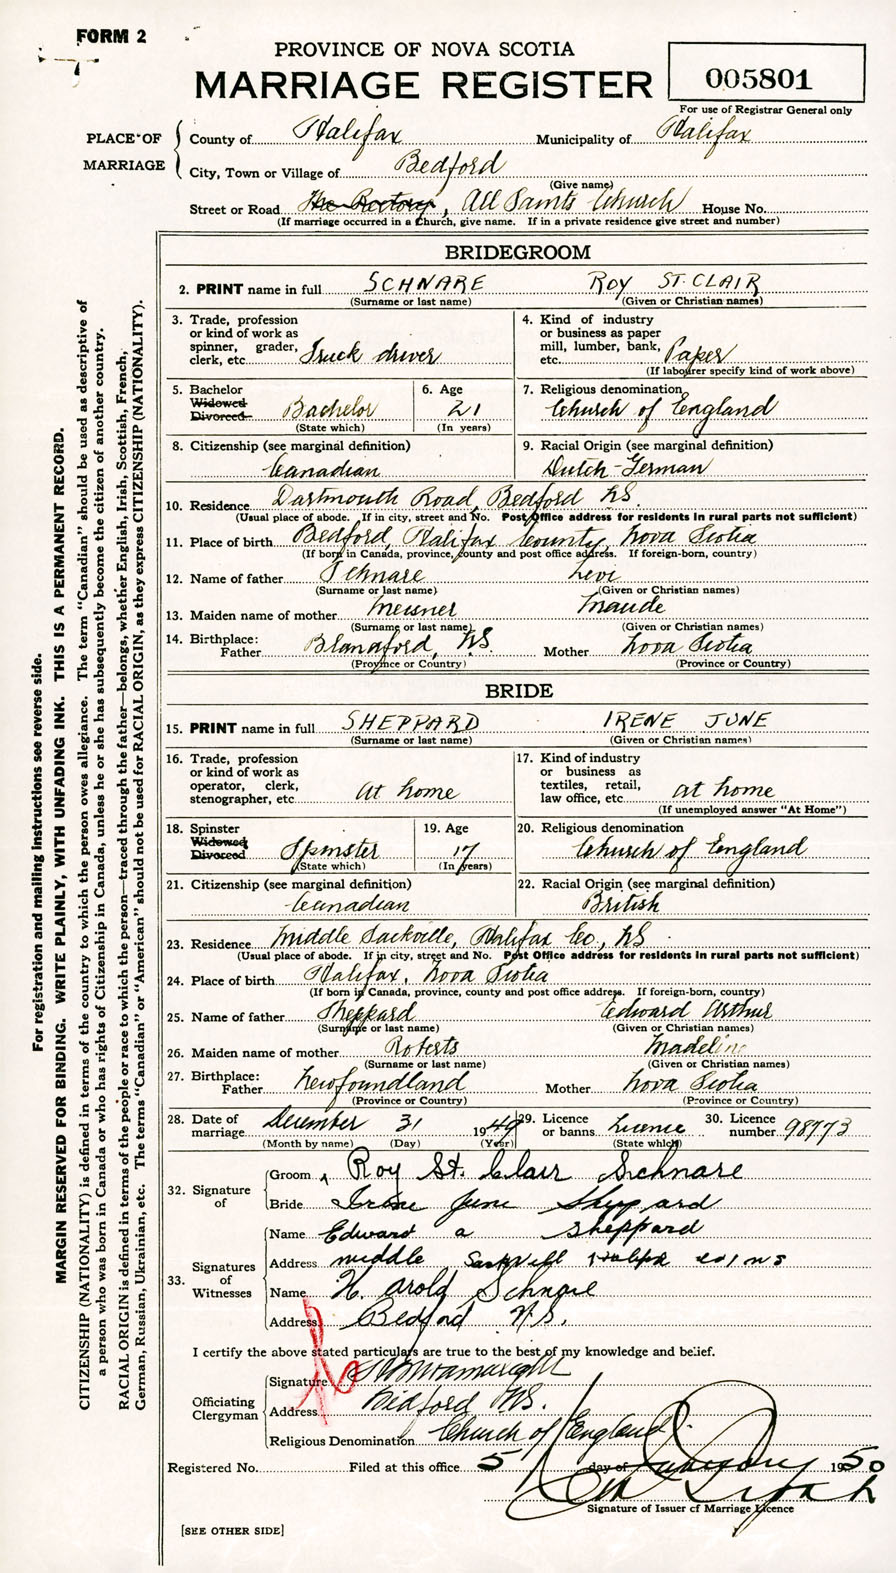 FORM 2
PROVINCE OF NOVA SCOTIA
MARRIAGE REGISTER
005801
For use of Registrar General only
PLACE OF MARRIAGE
County of Halifax Municipality of Halifax
City, Town or Village of Bedford
(Give name)
Street or Road The Rectory, All Saints Church House No.
(If marriage occurred in a Church, give name. If in a private residence give street and number)
BRIDEGROOM
2. PRINT name in full SCHNARE ROY ST. CLAIR
(Surname or last name) (Given or Christian names)
3. Trade, profession or kind of work as spinner, grader, clerk, etc. Truck driver
4. Kind of industry or business as paper mill, lumber, bank, etc. Paper
(If labourer specify kind of work above)
5. Bachelor Widowed Divorced Bachelor
(State which)
6. Age 21
(In years)
7. Religious denomination Church of England
8. Citizenship (see marginal definition) Canadian
9. Racial Origin (see marginal definition) Dutch-German
10. Residence Dartmouth Road, Bedford NS
(Usual place of abode. If in city, street and No. Post Office address for residents in rural parts not sufficient)
11. Place of birth Bedford, Halifax County, Nova Scotia
(If born in Canada, province, county and post office address. If foreign-born, country)
12. Name of father Schnare Levi
(Surname or last name) (Given or Christian names)
13. Maiden name of mother Meisner Maude
(Surname or last name) (Given or Christian names)
14. Birthplace: Father Blandford, NS. Mother Nova Scotia
(Province or Country) (Province or Country)
BRIDE
15. PRINT name in full SHEPPARD IRENE JUNE
(Surname or last name) (Given or Christian names)
16. Trade, profession or kind of work as operator, clerk, stenographer, etc. at home
17. Kind of industry or business as textiles, retail, law office, etc. at home
(If unemployed answer "At Home")
18. Spinster Widowed Divorced Spinster
(State which)
19. Age 17
(In years)
20. Religious denomination Church of England
21. Citizenship (see marginal definition) Canadian
22. Racial Origin (see marginal definition) British
23. Residence Middle Sackville, Halifax Co., NS
(Usual place of abode. If in city, street and No. Post Office address for residents in rural parts not sufficient)
24. Place of birth Halifax, Nova Scotia
(If born in Canada, province, county and post office address. If foreign-born, country)
25. Name of father Sheppard Edward Arthur
(Surname or last name) (Given or Christian names)
26. Maiden name of mother Roberts Madeline
(Surname or last name) (Given or Christian names)
27. Birthplace: Father Newfoundland Mother Nova Scotia
(Province or Country) (Province or Country)
28. Date of marriage December 31 1949
(Month by name) (Day) (Year)
29. Licence or banns Licence
(State which)
30. Licence number 98773
32. Signature of
Groom Roy St. Clair Schnare
Bride Irene June Sheppard
33. Signatures of Witnesses
Name Edward a Sheppard
Address middle Sackvill co / N S
Name H. arold Schnare
Address Bedford N.S.
I certify the above stated particulars are true to the best of my knowledge and belief.
Officiating Clergyman
Signature
Address Bedford NS.
Religious Denomination Church of England
Registered No. Filed at this office 5 day of January 1950
Signature of Issuer of Marriage Licence
[SEE OTHER SIDE]
For registration and mailing instructions see reverse side.
MARGIN RESERVED FOR BINDING. WRITE PLAINLY, WITH UNFADING INK. THIS IS A PERMANENT RECORD.
CITIZENSHIP (NATIONALITY) is defined in terms of the country to which the person owes allegiance. The term "Canadian" should be used as descriptive of
a person who was born in Canada or who has rights of Citizenship in Canada, unless he or she has subsequently become the citizen of another country.
RACIAL ORIGIN is defined in terms of the people or race to which the person—traced through the father—belongs, whether English, Irish, Scottish, French,
German, Russian, Ukrainian, etc. The terms "Canadian" or "American" should not be used for RACIAL ORIGIN, as they express CITIZENSHIP (NATIONALITY).